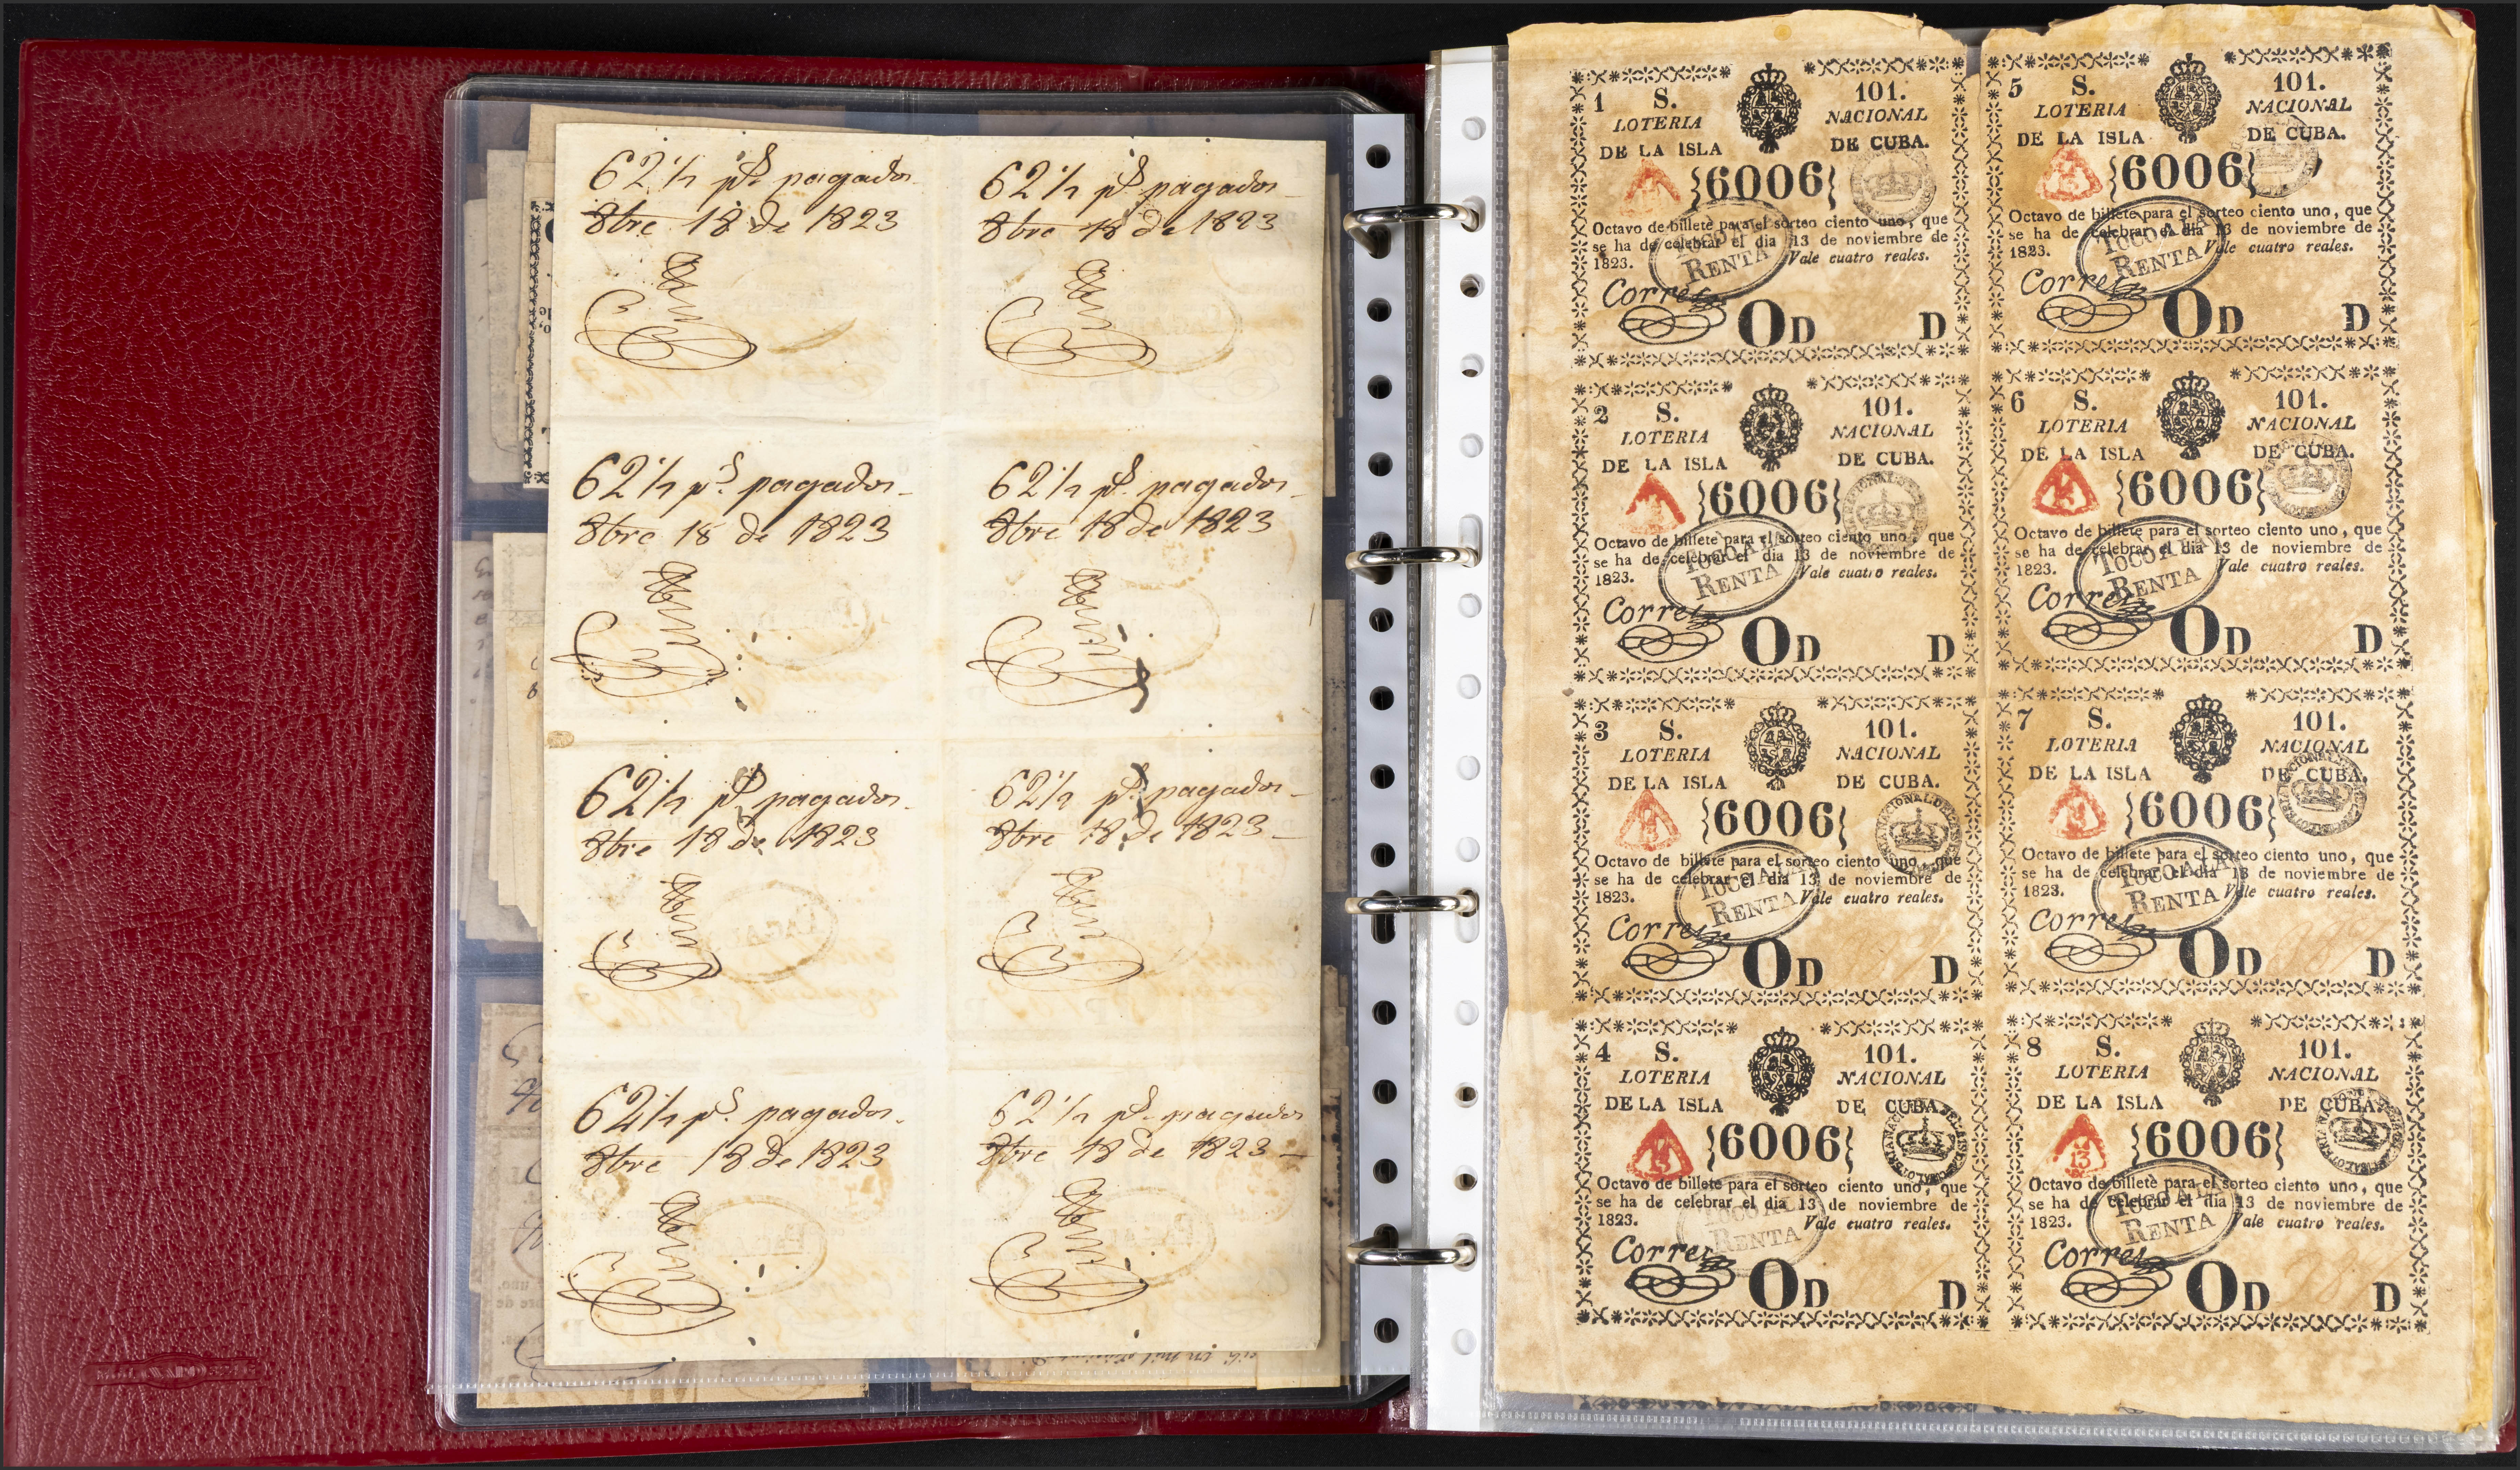 62 1/2 ps. pagados
8bre 18 de 1823
62 1/2 ps. pagados
8bre 18 de 1823
62 1/2 ps. pagados
8bre 18 de 1823
62 1/2 ps. pagados
8bre 18 de 1823
62 1/2 ps. pagados
8bre 18 de 1823
62 1/2 ps. pagados
8bre 18 de 1823
62 1/2 ps. pagados
8bre 18 de 1823
62 1/2 ps. pagados
8bre 18 de 1823
1 S. 101.
LOTERIA NACIONAL
DE LA ISLA DE CUBA.
6006
Octavo de billete para el sorteo ciento uno, que
se ha de celebrar el dia 13 de noviembre de
1823. Vale cuatro reales.
TOCO A LA
RENTA
OD D
5 S. 101.
LOTERIA NACIONAL
DE LA ISLA DE CUBA.
6006
Octavo de billete para el sorteo ciento uno, que
se ha de celebrar el dia 13 de noviembre de
1823. Vale cuatro reales.
TOCO A LA
RENTA
OD D
2 S. 101.
LOTERIA NACIONAL
DE LA ISLA DE CUBA.
6006
Octavo de billete para el sorteo ciento uno, que
se ha de celebrar el dia 13 de noviembre de
1823. Vale cuatro reales.
TOCO A LA
RENTA
OD D
6 S. 101.
LOTERIA NACIONAL
DE LA ISLA DE CUBA.
6006
Octavo de billete para el sorteo ciento uno, que
se ha de celebrar el dia 13 de noviembre de
1823. Vale cuatro reales.
TOCO A LA
RENTA
OD D
3 S. 101.
LOTERIA NACIONAL
DE LA ISLA DE CUBA.
6006
Octavo de billete para el sorteo ciento uno, que
se ha de celebrar el dia 13 de noviembre de
1823. Vale cuatro reales.
TOCO A LA
RENTA
OD D
7 S. 101.
LOTERIA NACIONAL
DE LA ISLA DE CUBA.
6006
Octavo de billete para el sorteo ciento uno, que
se ha de celebrar el dia 13 de noviembre de
1823. Vale cuatro reales.
TOCO A LA
RENTA
OD D
4 S. 101.
LOTERIA NACIONAL
DE LA ISLA DE CUBA.
6006
Octavo de billete para el sorteo ciento uno, que
se ha de celebrar el dia 13 de noviembre de
1823. Vale cuatro reales.
TOCO A LA
RENTA
OD D
8 S. 101.
LOTERIA NACIONAL
DE LA ISLA DE CUBA.
13
6006
Octavo de billete para el sorteo ciento uno, que
se ha de celebrar el dia 13 de noviembre de
1823. Vale cuatro reales.
TOCO A LA
RENTA
OD D